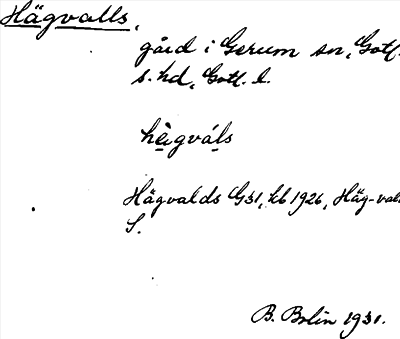 Hägvalls,
gård i Gerum sn, Gotl.
s. hd, Gotl. l.
hè̱i̱gváḻs
Hägvalds G31, kb 1926, Häg-val
S.
B. Bolin 1931.